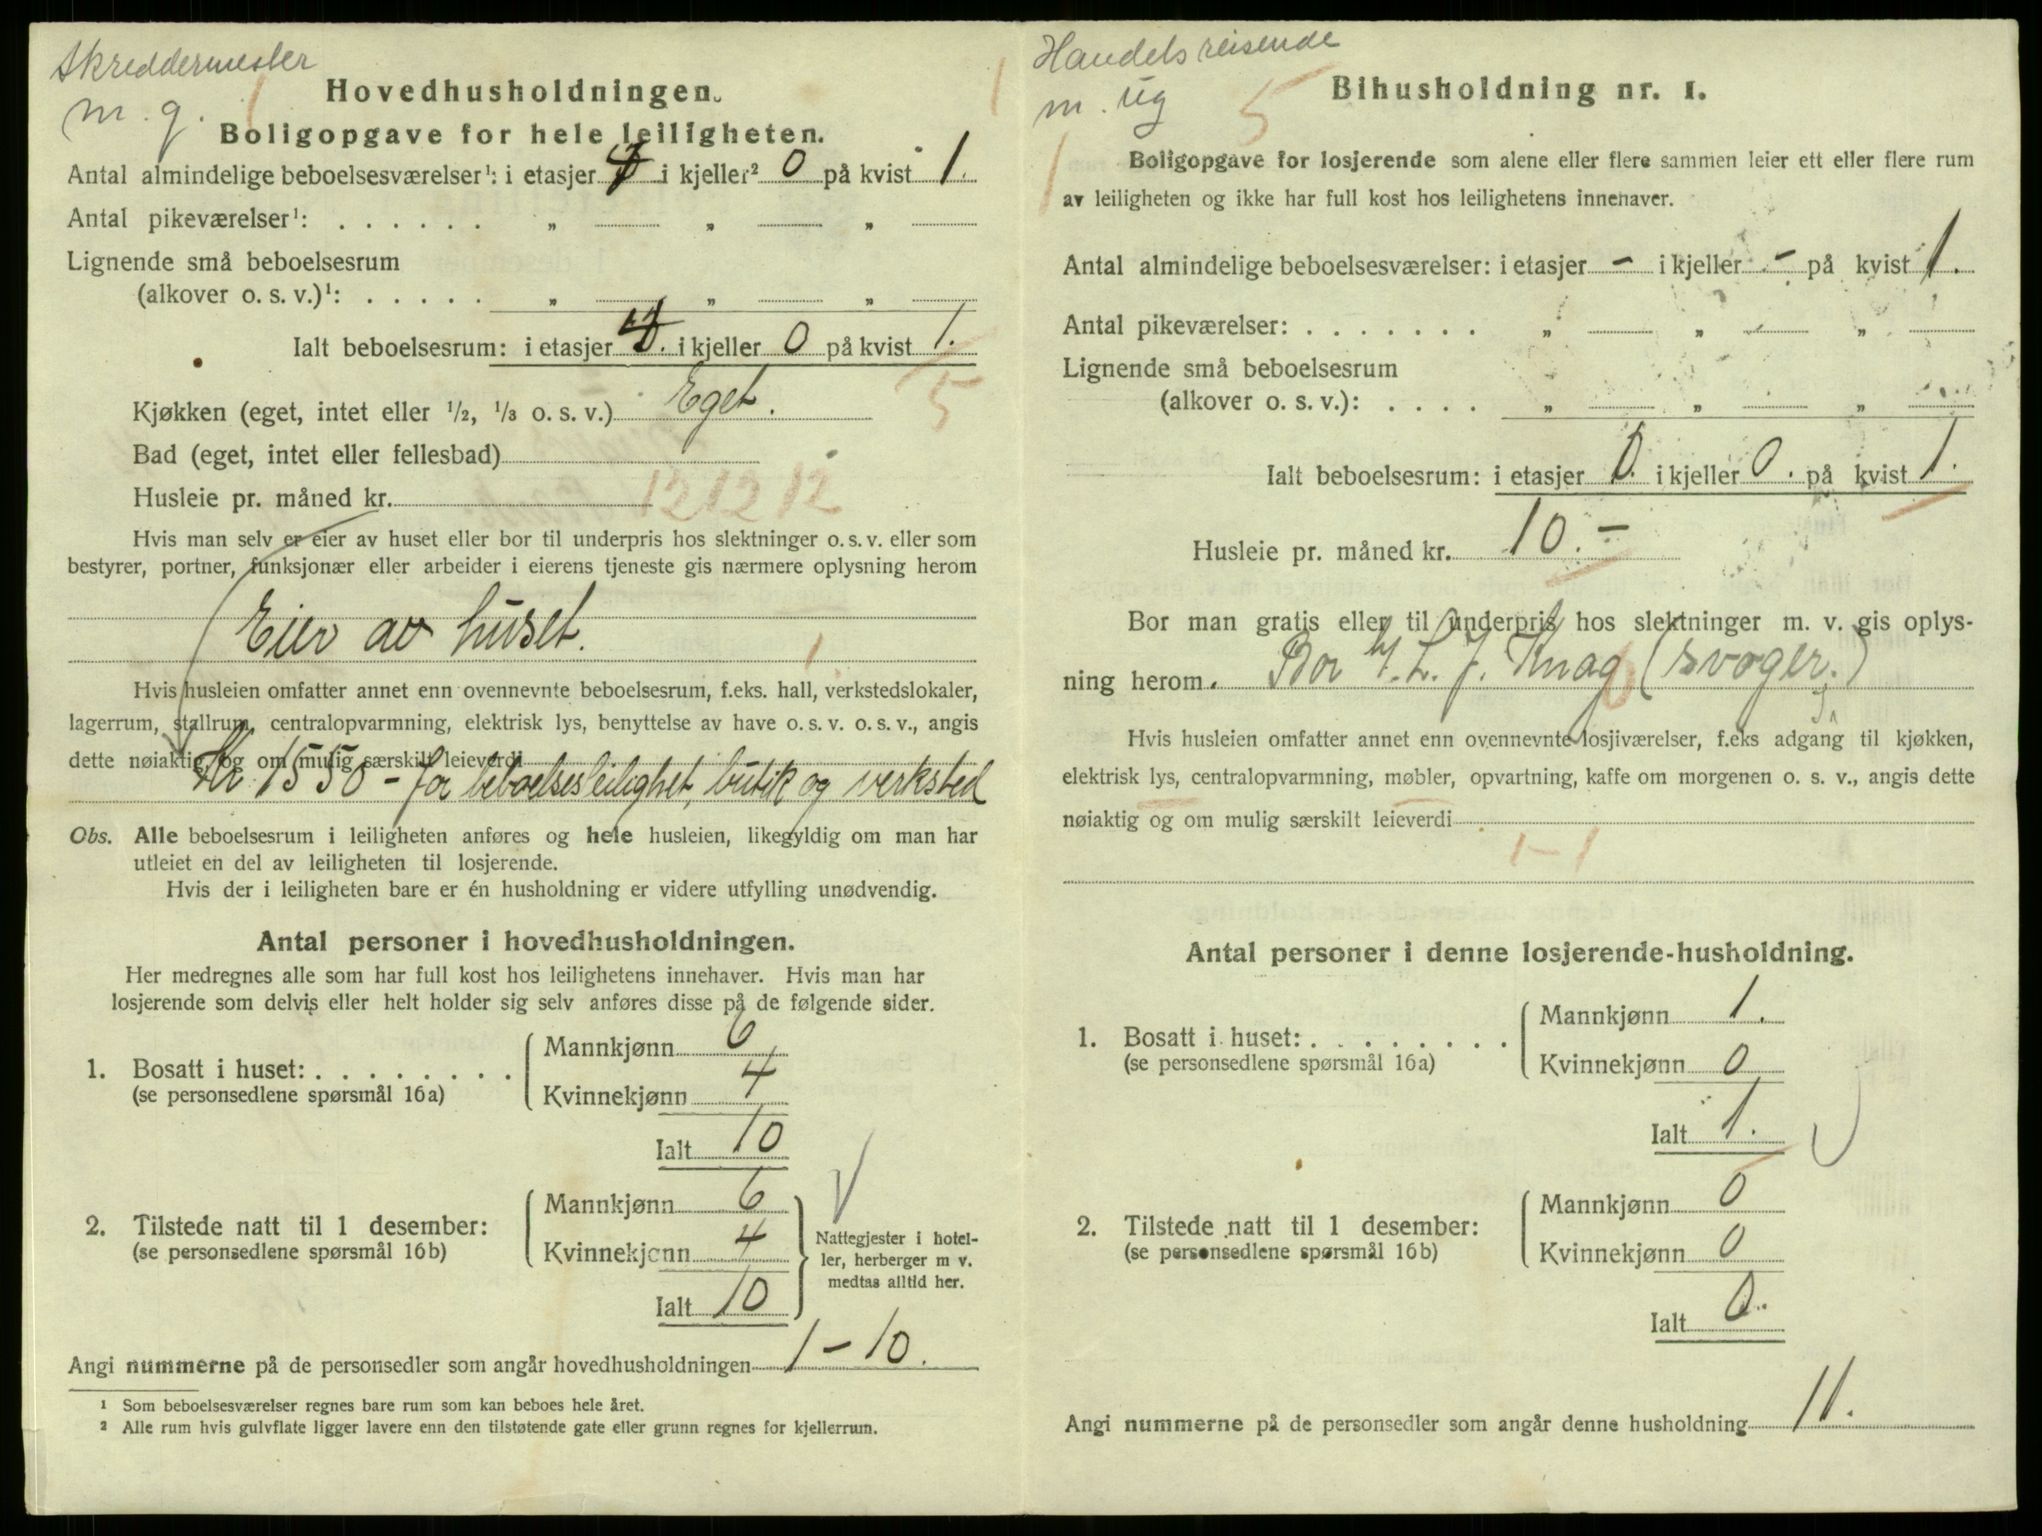 Skreddermester
m. g. 1
Hovedhusholdningen.
Boligopgave for hele leiligheten.
Antal almindelige beboelsesværelser¹: i etasjer 4 i kjeller² 0 på kvist 1.
Antal pikeværelser¹: . . . . . . „ „ „
Lignende små beboelsesrum
(alkover o. s. v.)¹: . . . . . „ „ „
Ialt beboelsesrum: i etasjer 4. i kjeller 0 på kvist 1.
5
Kjøkken (eget, intet eller 1/2, 1/3 o. s. v.) Eget.
Bad (eget, intet eller fellesbad)
Husleie pr. måned kr. 12 12 12
Hvis man selv er eier av huset eller bor til underpris hos slektninger o. s. v. eller som
bestyrer, portner, funksjonær eller arbeider i eierens tjeneste gis nærmere oplysning herom
Eier av huset.
1.
Hvis husleien omfatter annet enn ovennevnte beboelsesrum, f.eks. hall, verkstedslokaler,
lagerrum, stallrum, centralopvarmning, elektrisk lys, benyttelse av have o. s. v. o. s. v., angis
dette nøiaktig, og om mulig særskilt leieverdi
Kr 1550 – for beboelsesleilighet, butik og verksted
Obs. Alle beboelsesrum i leiligheten anføres og hele husleien, likegyldig om man har
utleiet en del av leiligheten til losjerende.
Hvis der i leiligheten bare er én husholdning er videre utfylling unødvendig.
Antal personer i hovedhusholdningen.
Her medregnes alle som har full kost hos leilighetens innehaver. Hvis man har
losjerende som delvis eller helt holder sig selv anføres disse på de følgende sider.
1. Bosatt i huset: . . . . . . . . Mannkjønn 6
(se personsedlene spørsmål 16a) Kvinnekjønn 4
Ialt 10
2. Tilstede natt til 1 desember: Mannkjønn 6
(se personsedlene spørsmål 16b) Kvinnekjønn 4
Ialt 10
Nattegjester i hotel-
ler, herberger m v.
medtas alltid her.
Angi nummerne på de personsedler som angår hovedhusholdningen 1 – 10.
¹ Som beboelsesværelser regnes bare rum som kan beboes hele året.
² Alle rum hvis gulvflate ligger lavere enn den tilstøtende gate eller grunn regnes for kjellerrum.
1
Handelsreisende
m. ug 5
Bihusholdning nr. 1.
1
Boligopgave for losjerende som alene eller flere sammen leier ett eller flere rum
av leiligheten og ikke har full kost hos leilighetens innehaver.
Antal almindelige beboelsesværelser: i etasjer – i kjeller – på kvist 1.
Antal pikeværelser: . . . . . . . „ „ „
Lignende små beboelsesrum
(alkover o. s. v.): . . . . „ „ „
Ialt beboelsesrum: i etasjer 0. i kjeller 0. på kvist 1.
Husleie pr. måned kr. 10.–
Bor man gratis eller til underpris hos slektninger m. v. gis oplys-
ning herom. Bor h. L. J. Knag (svoger.)
Hvis husleien omfatter annet enn ovennevnte losjiværelser, f.eks adgang til kjøkken,
elektrisk lys, centralopvarmning, møbler, opvartning, kaffe om morgenen o. s. v., angis dette
nøiaktig og om mulig særskilt leieverdi
1 – 1
Antal personer i denne losjerende-husholdning.
1. Bosatt i huset: . . . . . . . . Mannkjønn 1.
(se personsedlene spørsmål 16a) Kvinnekjønn 0
Ialt 1.
2. Tilstede natt til 1 desember: Mannkjønn 0
(se personsedlene spørsmål 16b) Kvinnekjønn 0
Ialt 0.
Angi nummerne på de personsedler som angår denne husholdning 11.